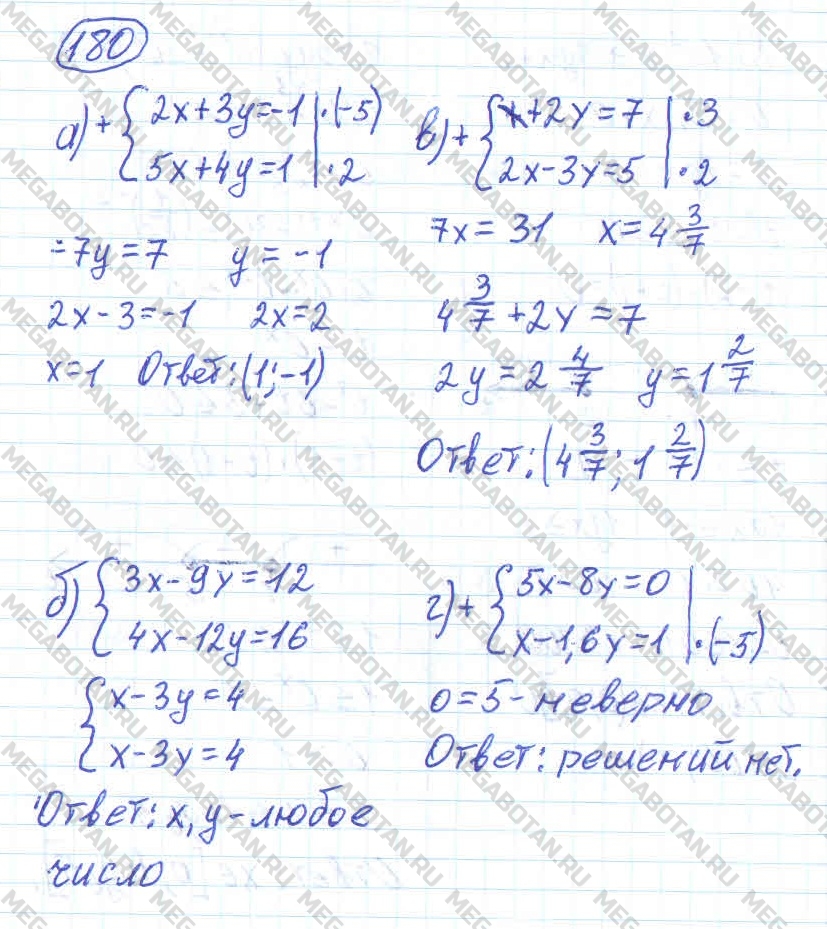 180
а) + { 2x+3y=-1 | ·(-5)
5x+4y=1 | ·2
-7y=7 y=-1
2x-3=-1 2x=2
x=1 Ответ: (1;-1)
в) + { x+2y=7 | ·3
2x-3y=5 | ·2
7x=31 x=4 3/7
4 3/7 +2y=7
2y=2 4/7 y=1 2/7
Ответ: (4 3/7; 1 2/7)
б) { 3x-9y=12
4x-12y=16
{ x-3y=4
x-3y=4
Ответ: x, y - любое
число
г) + { 5x-8y=0
x-1,6y=1 | ·(-5)
0=5 - неверно
Ответ: решений нет.
MEGABOTAN.RU